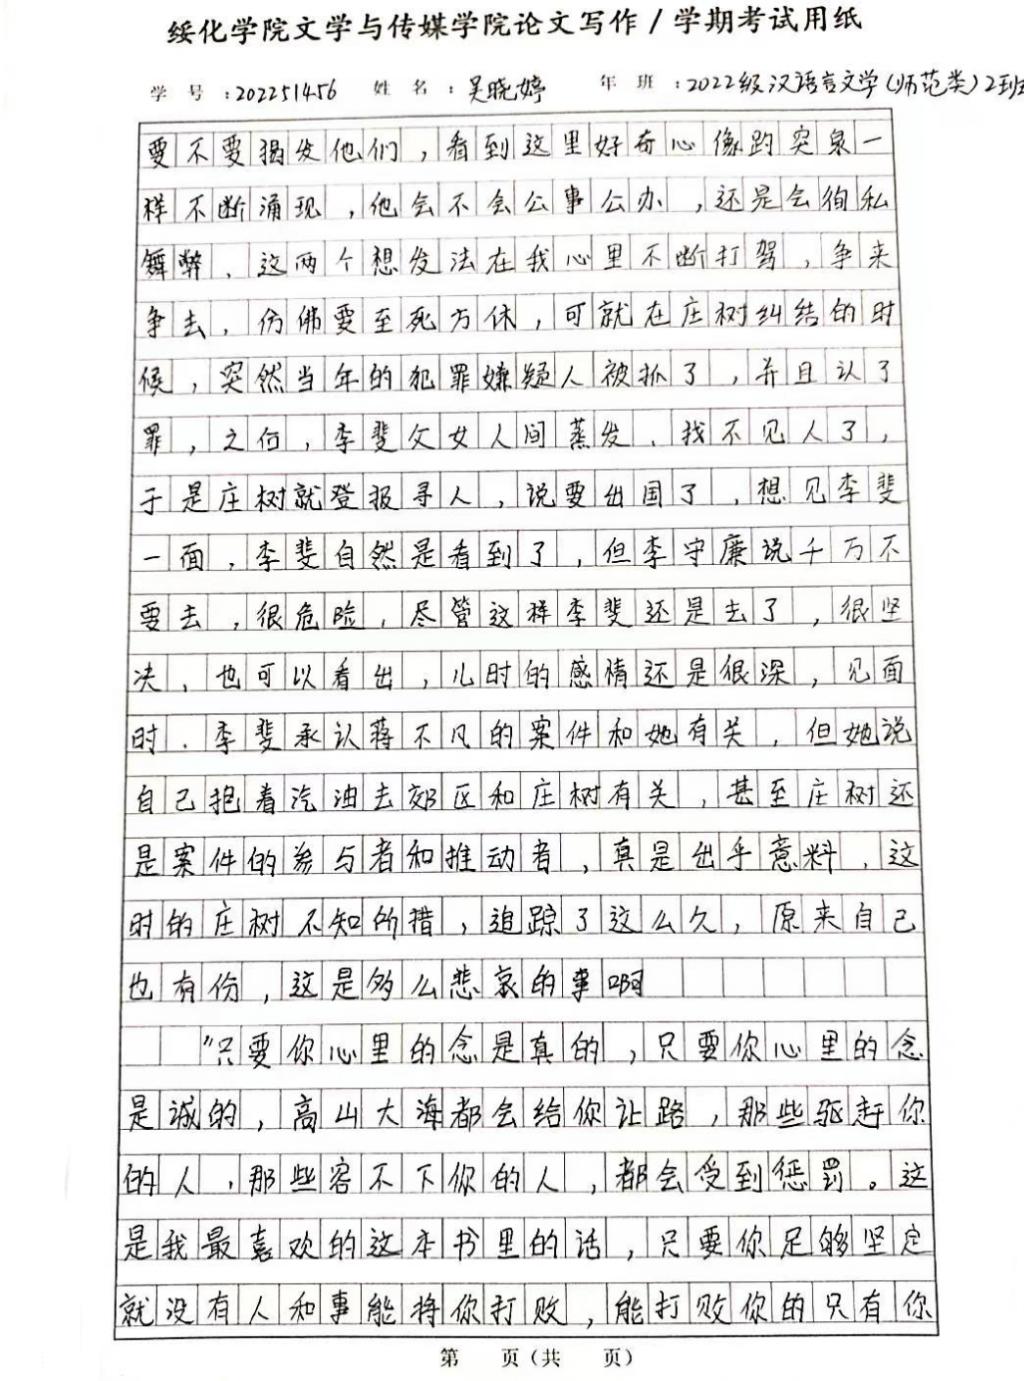 绥化学院文学与传媒学院论文写作/学期考试用纸
学号:202251456 姓名:吴晓婷 年班:2022级汉语言文学(师范类)2班
要不要揭发他们,看到这里好奇心像趵突泉一
样不断涌现,他会不会公事公办,还是会徇私
舞弊,这两个想发法在我心里不断打驾,争来
争去,仿佛要至死方休,可就在庄树纠结的时
候,突然当年的犯罪嫌疑人被抓了,并且认了
罪,之后,李斐父女人间蒸发,找不见人了,
于是庄树就登报寻人,说要出国了,想见李斐
一面,李斐自然是看到了,但李守廉说千万不
要去,很危险,尽管这样李斐还是去了,很坚
决,也可以看出,儿时的感情还是很深,见面
时,李斐承认蒋不凡的案件和她有关,但她说
自己抱着汽油去郊区和庄树有关,甚至庄树还
是案件的参与者和推动者,真是出乎意料,这
时的庄树不知所措,追踪了这么久,原来自己
也有份,这是多么悲哀的事啊
"只要你心里的念是真的,只要你心里的念
是诚的,高山大海都会给你让路,那些驱赶你
的人,那些容不下你的人,都会受到惩罚。这
是我最喜欢的这本书里的话,只要你足够坚定
就没有人和事能将你打败,能打败你的只有你
第 页(共 页)